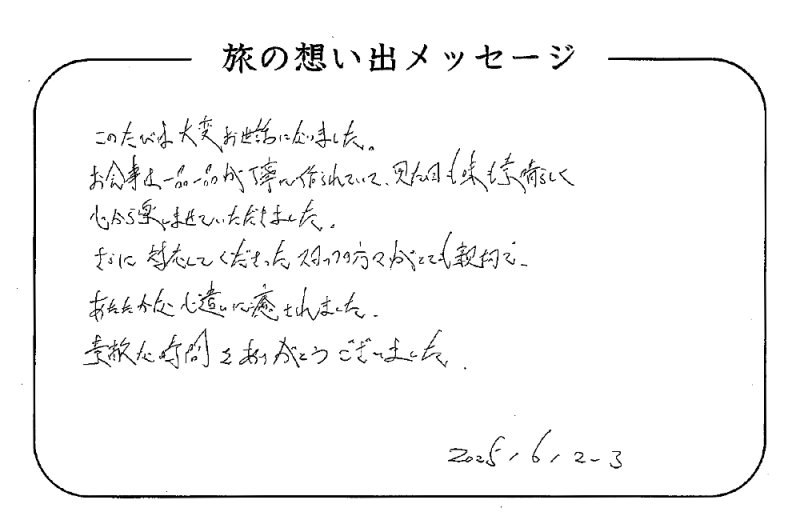 旅の想い出メッセージ
このたびは大変お世話になりました。
お食事は一品一品が丁寧に作られていて、見た目も味も素晴らしく
心から楽しませていただきました。
さらに対応してくださったスタッフの方々がとても親切で、
あたたかな心遣いに癒されました。
素敵な時間をありがとうございました。
2025.6.2-3